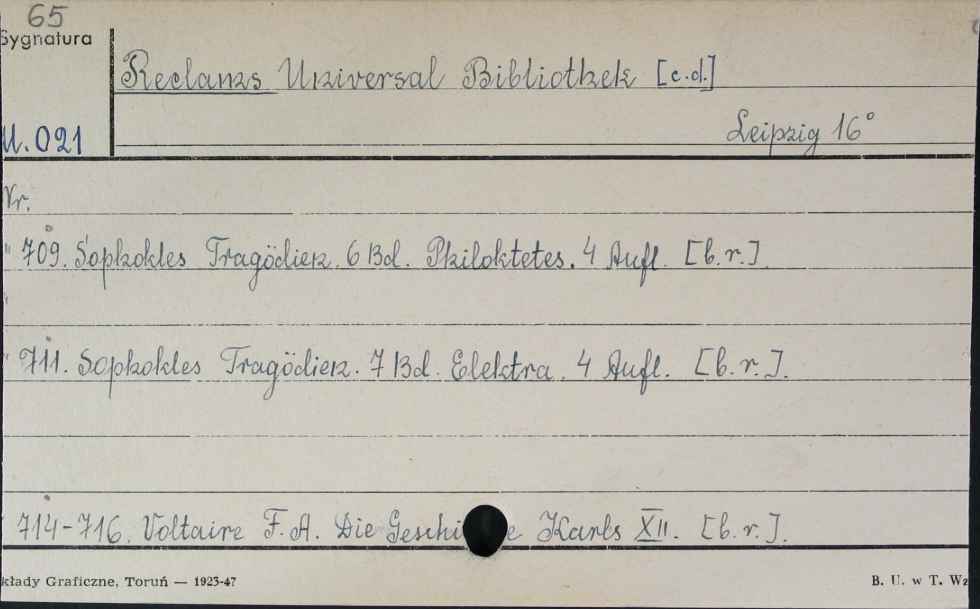 65
Sygnatura
Reclams Universal Bibliothek [c.d.]
U. 021
Leipzig 16°
Nr.
" 709. Sophokles Tragödien. 6 Bd. Philoktetes. 4 Aufl. [b.r.]
"
" 711. Sophokles Tragödien. 7 Bd. Elektra. 4 Aufl. [b.r.].
714-716. Voltaire F. A. Die Geschi e Karls XII. [b.r.].
kłady Graficzne, Toruń — 1923-47
B. U. w T. Wz